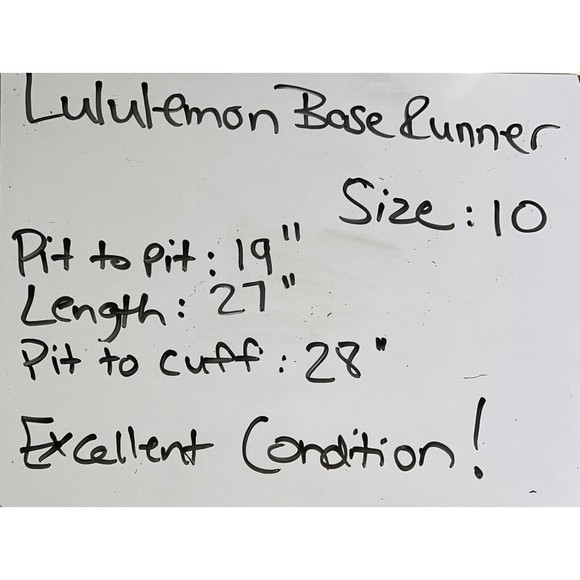 Lululemon Base Runner
Size: 10
Pit to pit: 19"
Length: 27"
Pit to cuff: 28"
Excellent Condition!